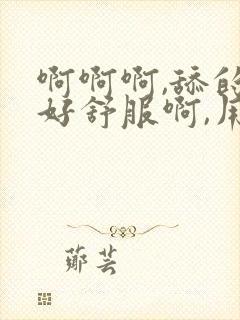 啊啊啊,舔的
好舒服啊,用
郑芸